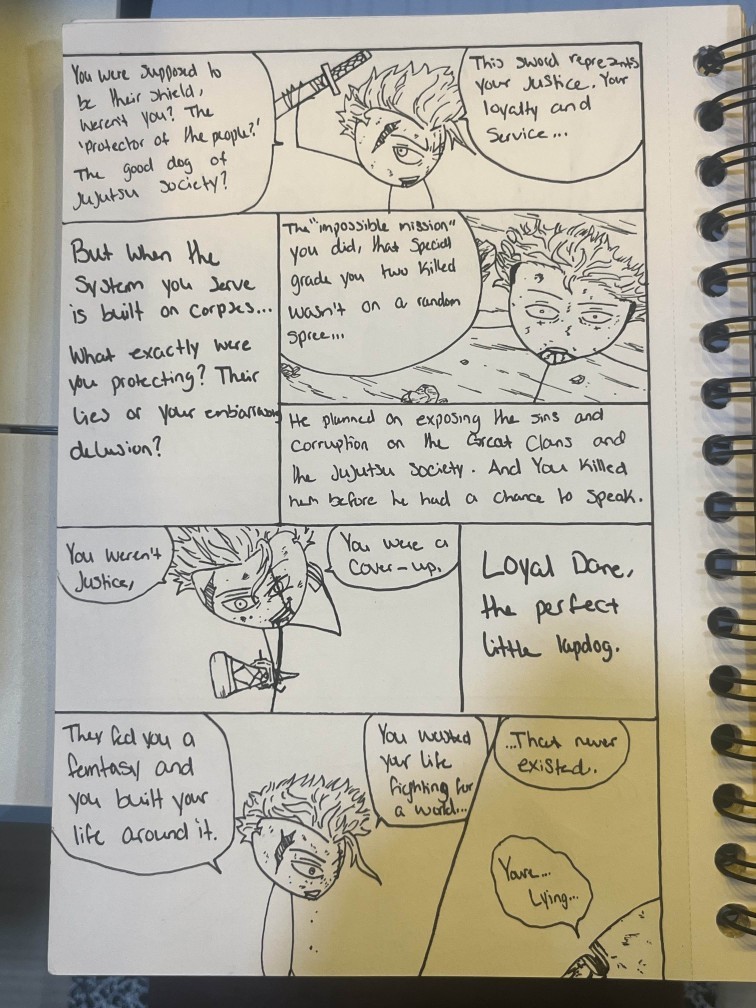 You were supposed to
be their shield,
weren't you? The
'Protector of the people?'
The good dog of
Jujutsu Society?
This sword represents
your Justice. Your
loyalty and
Service...
But when the
System you serve
is built on corpses...
What exactly were
you protecting? Their
lies or your embarrassing
delusion?
The "impossible mission"
you did, that special
grade you two killed
wasn't on a random
spree...
He planned on exposing the sins and
corruption on the Great Clans and
the Jujutsu Society. And You killed
him before he had a chance to speak.
You weren't
Justice,
You were a
Cover-up.
Loyal Dane,
the perfect
little lapdog.
They fed you a
fantasy and
you built your
life around it.
You wasted
your life
fighting for
a world...
...That never
existed.
You're...
Lying...